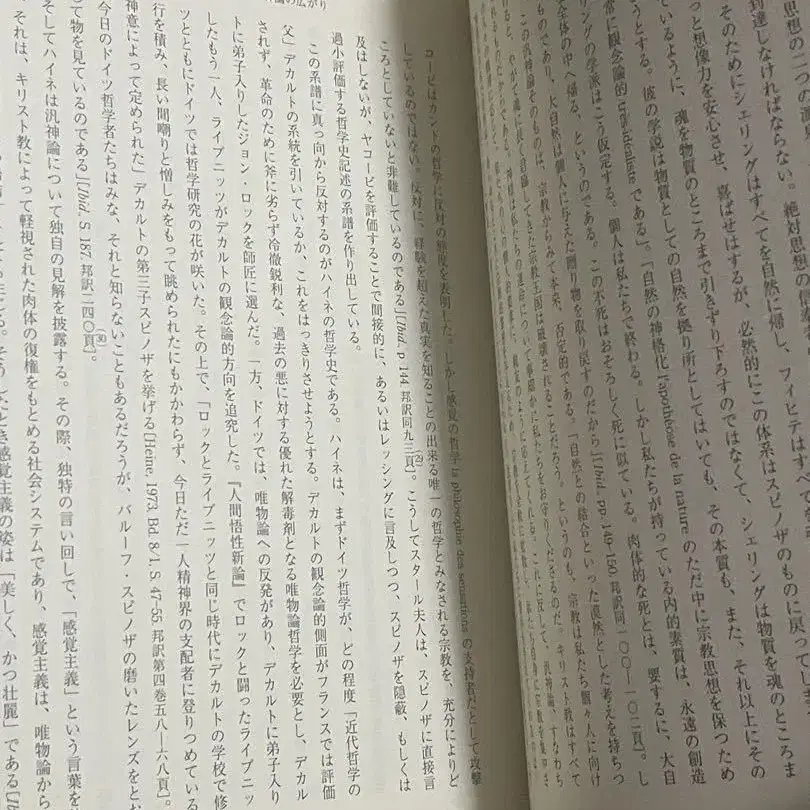 思想の二つの
到達しなければならない。絶対思想の
そのためにシェリングはすべてを自然に帰し、フィヒテはすべ
っと想像力を安心させ、喜ばせはするが、必然的にこの体系はスピノザのものに戻ってしま
ているように、魂を物質のところまで引きずり下ろすのではなくて、シェリングは物質を魂のところま
うとする。彼の学説は物質としての自然を拠り所としてはいても、その本質も、また、それ以上にその
常に観念論的 très idéaliste である」。「自然の神格化 l'apothéose de la nature のただ中に宗教思想を保つため
リングの学派はこう仮定する。個人は私たちで終わる。しかし私たちが持っている内的素質は、永遠の創造
全体の中へ帰る、というのである。この不死はおそろしく死に似ている。肉体的な死とは、要するに、大自
ものであり、大自然は個人に与えた贈り物を取り戻すのだから」[Ibid. pp. 149-150. 邦訳同一〇〇-一〇二頁]。し
コービはカントの哲学に反対の態度を表明した。しかし感覚の哲学 la philosophie des sensations の支持者だとして攻撃
しているのではない。反対に、経験を超えた真実を知ることの出来る唯一の哲学とみなされる宗教を、充分によりど
ころとしていないと非難しているのである」[Ibid. p. 144. 邦訳同九三頁]。(29)こうしてスタール夫人は、スピノザに直接言
及はしないが、ヤコービを評価することで間接的に、あるいはレッシングに言及しつつ、スピノザを隠蔽、もしくは
過小評価する哲学史記述の系譜を作り出している。
この系譜に真っ向から反対するのがハイネの哲学史である。ハイネは、まずドイツ哲学が、どの程度「近代哲学の
父」デカルトの系統を引いているか、これをはっきりさせようとする。デカルトの観念論的側面がフランスでは評価
されず、革命のために斧に劣らず冷徹鋭利な、過去の悪に対する優れた解毒剤となる唯物論哲学を必要とし、デカル
トに弟子入りしたジョン・ロックを師匠に選んだ。一方、ドイツでは、唯物論への反発があり、デカルトに弟子入り
したもう一人、ライプニッツがデカルトの観念論的方向を追究した。『人間悟性新論』でロックと闘ったライプニッ
ツとともにドイツでは哲学研究の花が咲いた。その上で、「ロックとライプニッツと同じ時代にデカルトの学校で修
行を積み、長い間嘲りと憎しみをもって眺められたにもかかわらず、今日ただ一人精神界の支配者に登りつめている
神意によって定められた」デカルトの第三子スピノザを挙げる[Heine, 1973, Bd. 8/1. S. 47-55. 邦訳第四巻五八-六八頁]。
今日のドイツ哲学者たちはみな、それと知らないこともあるだろうが、バルーフ・スピノザの磨いたレンズをとお
して物を見ているのである」[Ibid. S. 187. 邦訳二四〇頁]。(30)
そしてハイネは汎神論について独自の見解を披露する。その際、独特の言い回しで、「感覚主義」という言葉を
それは、キリスト教によって軽視された肉体の復権をもとめる社会システムであり、感覚主義は、唯物論から
感覚主義の姿は「美しく、かつ壮麗」である[Ib